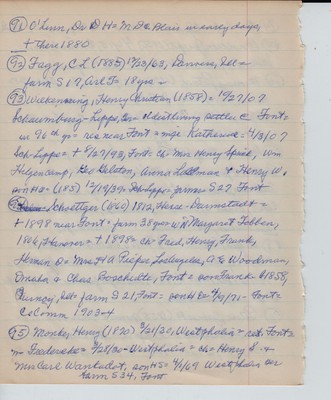 91) O'Linn, Dr D. H = M.D. @ Blair in early days,
+ there 1880
92) Fagg, C L (1855) 12/23/63, Danvers, Ill =
farm S 17, Arl Tp 18 yrs -
93) Wiekenning, Henry Christian (1858) = 10/27/07
Schaumburg-Lippe, Ger = oldest living settler @ Font =
in 96th yr = res near Font = mge Katherine = 4/3/07
Sch-Lippe = + 8/27/98, Font = ch = Mrs Henry Sprick, Wm
Hilgenkamp, Geo Dalston, Anna Lallman & Henry W.
son HB = (185) 12/19/39 = Sch-Lippe = farmer S 27 Font
94) Schoettger (1860) 1812, Hesse-Darmstadt =
+ 1898 near Font = farm 38 yrs = w/ Margaret Fobben,
1806, Hanover = + 1898 = ch = Fred, Henry, Frank,
Herman @ = Mrs H A Pieper, Los Angeles, A G Woodman,
Omaha & Chas Boschult, Font = son Frank @ 1858,
Quincy, Ill = farm S 21, Font = son HB @ = 4/9/71 - Font =
C o Comm 1903-4
95) Monke, Henry (1870) 3/21/30, Westphalia = ret. Font =
m Fredericka = 3/28/30 = Westphalia = ch = Henry S. &
Mrs Carl Wankelot, son HS = 4/1/69 Westphalia Ger
farm S 34, Font